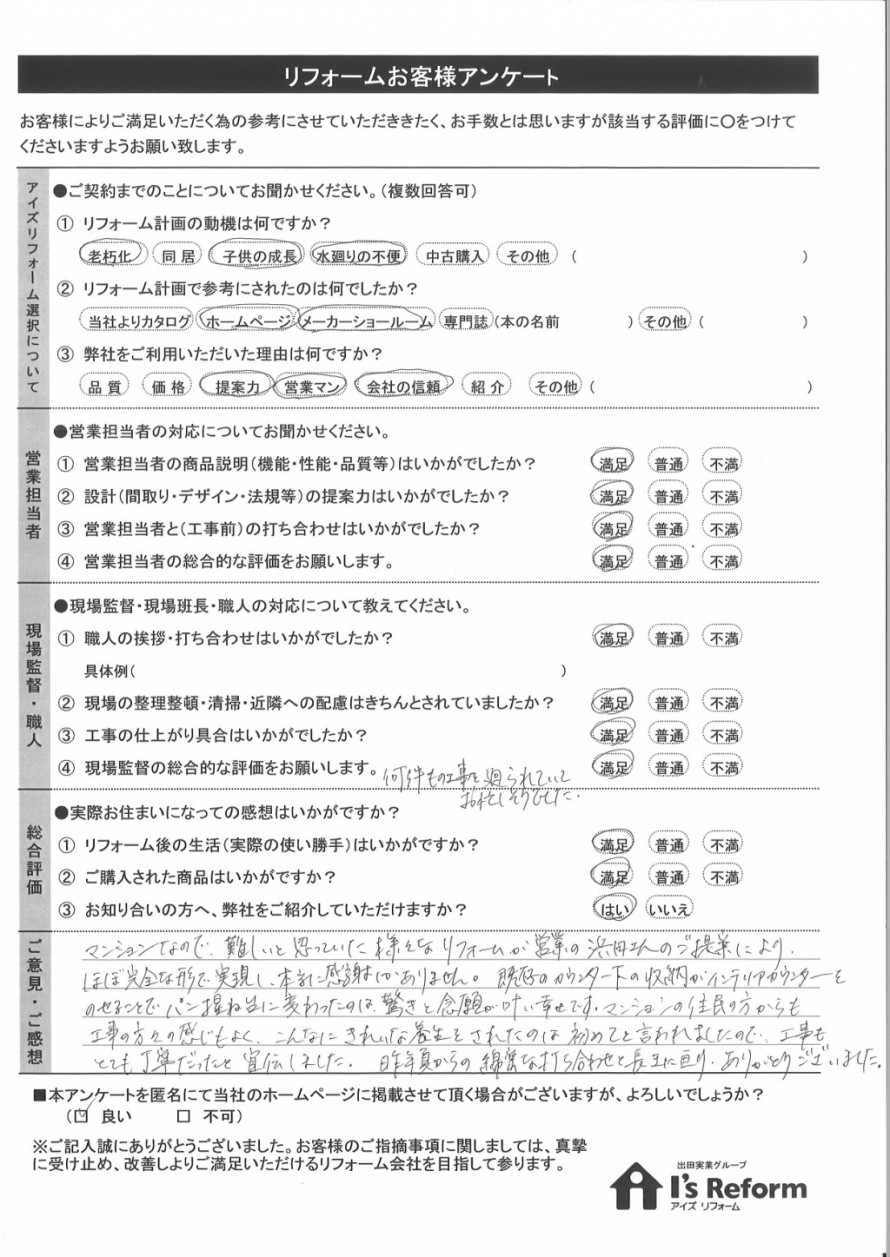 リフォームお客様アンケート
お客様によりご満足いただく為の参考にさせていただききたく、お手数とは思いますが該当する評価に〇をつけて
くださいますようお願い致します。
アイズリフォーム選択について
●ご契約までのことについてお聞かせください。(複数回答可)
① リフォーム計画の動機は何ですか？
老朽化 同居 子供の成長 水廻りの不便 中古購入 その他 ( )
② リフォーム計画で参考にされたのは何でしたか？
当社よりカタログ ホームページ メーカーショールーム 専門誌(本の名前 ) その他 ( )
③ 弊社をご利用いただいた理由は何ですか？
品質 価格 提案力 営業マン 会社の信頼 紹介 その他 ( )
営業担当者
●営業担当者の対応についてお聞かせください。
① 営業担当者の商品説明(機能・性能・品質等)はいかがでしたか？ 満足 普通 不満
② 設計(間取り・デザイン・法規等)の提案力はいかがでしたか？ 満足 普通 不満
③ 営業担当者と(工事前)の打ち合わせはいかがでしたか？ 満足 普通 不満
④ 営業担当者の総合的な評価をお願いします。 満足 普通 不満
現場監督・職人
●現場監督・現場班長・職人の対応について教えてください。
① 職人の挨拶・打ち合わせはいかがでしたか？ 満足 普通 不満
具体例( )
② 現場の整理整頓・清掃・近隣への配慮はきちんとされていましたか？ 満足 普通 不満
③ 工事の仕上がり具合はいかがでしたか？ 満足 普通 不満
④ 現場監督の総合的な評価をお願いします。 満足 普通 不満
何件もの工事を廻られていて
お忙しそうでした.
総合評価
●実際お住まいになっての感想はいかがですか？
① リフォーム後の生活(実際の使い勝手)はいかがですか？ 満足 普通 不満
② ご購入された商品はいかがですか？ 満足 普通 不満
③ お知り合いの方へ、弊社をご紹介していただけますか？ はい いいえ
ご意見・ご感想
マンションなので、難しいと思っていた様々なリフォームが営業の浜田さんのご提案により、
ほぼ完全な形で実現し、本当に感謝しかありません。既存のカウンター下の収納がインテリアカウンターを
のせることでパン捏ね台に変わったのは、驚きと念願が叶い幸せです。マンションの住民の方からも
工事の方々の感じもよく、こんなにきれいな養生をされたのは初めてと言われましたので、工事も
とても丁寧だったと宣伝しました。昨年夏からの綿密な打ち合わせと長丁に亘り、ありがとうございました。
■本アンケートを匿名にて当社のホームページに掲載させて頂く場合がございますが、よろしいでしょうか？
(☑ 良い □ 不可)
※ご記入誠にありがとうございました。お客様のご指摘事項に関しましては、真摯
に受け止め、改善しよりご満足いただけるリフォーム会社を目指して参ります。
出田実業グループ
I's Reform
アイズ リフォーム